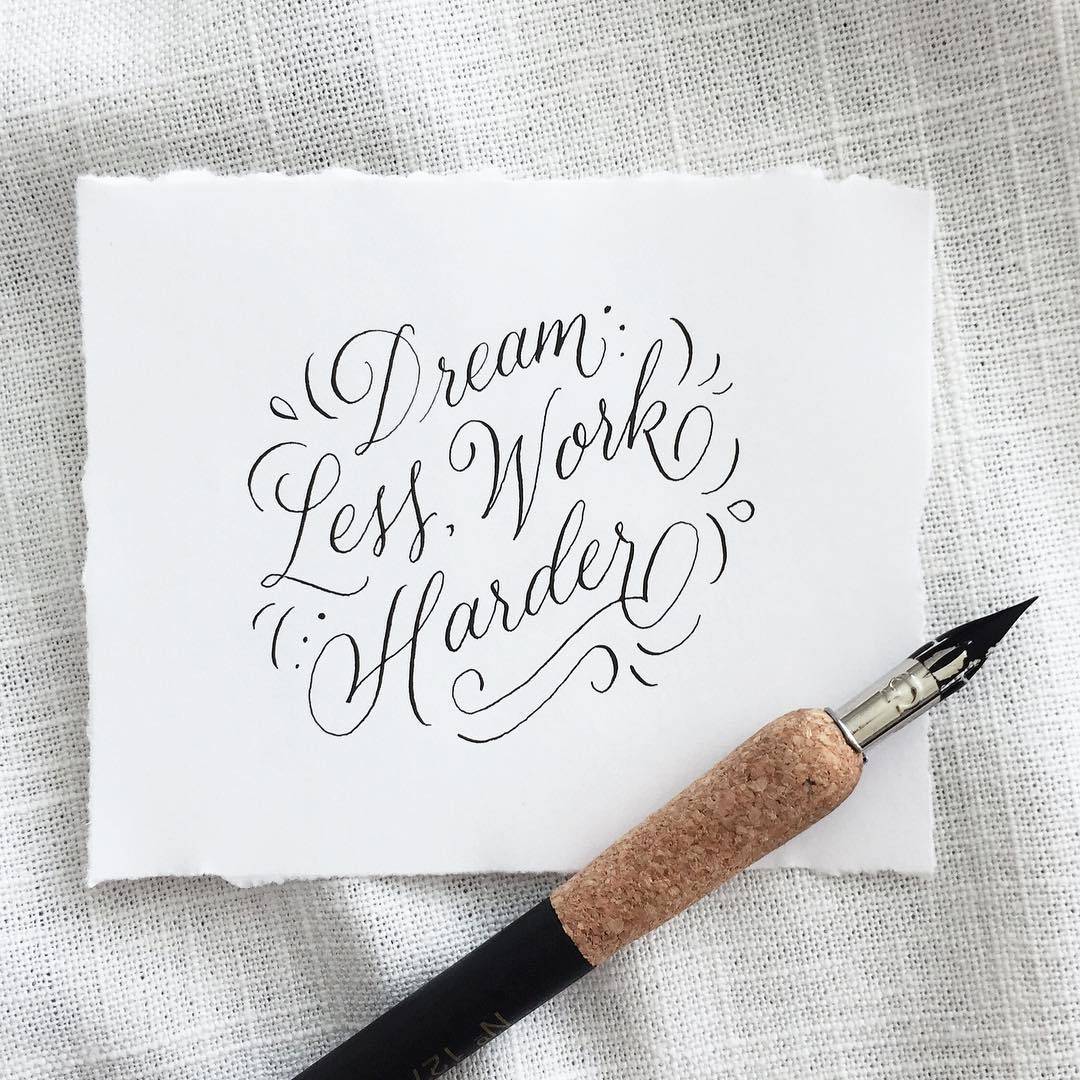 Dream
Less, Work
Harder